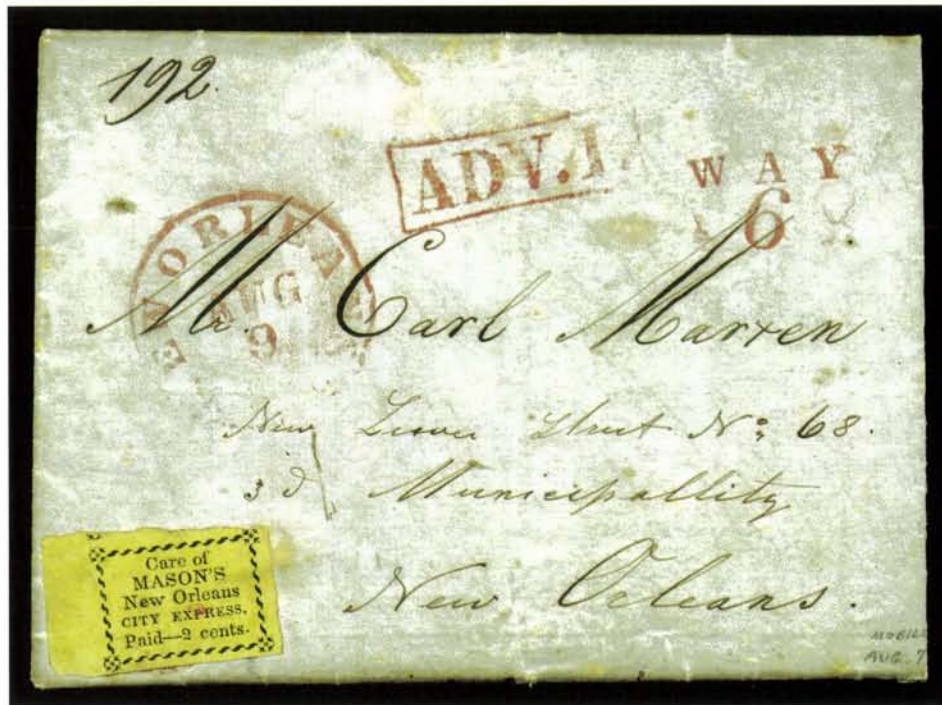 192.
ADV.1
WAY
6
N ORLEA
AUG
9
Mr. Carl Marxen
New Street No: 68.
3d Municipallity
New Orleans.
Care of
MASON'S
New Orleans
CITY EXPRESS.
Paid—2 cents.
MOBILE
AUG. 7